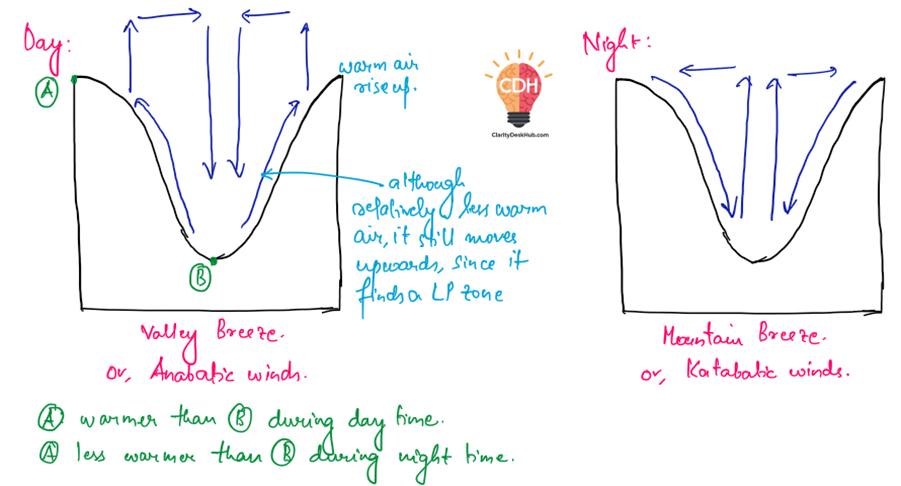 Day:
A
warm air
rise up.
CDH
ClarityDeskHub.com
although
relatively less warm
air, it still moves
upwards, since it
finds a LP zone
B
Valley Breeze.
or, Anabatic winds.
Night:
Mountain Breeze.
or, Katabatic winds.
A warmer than B during day time.
A less warmer than B during night time.